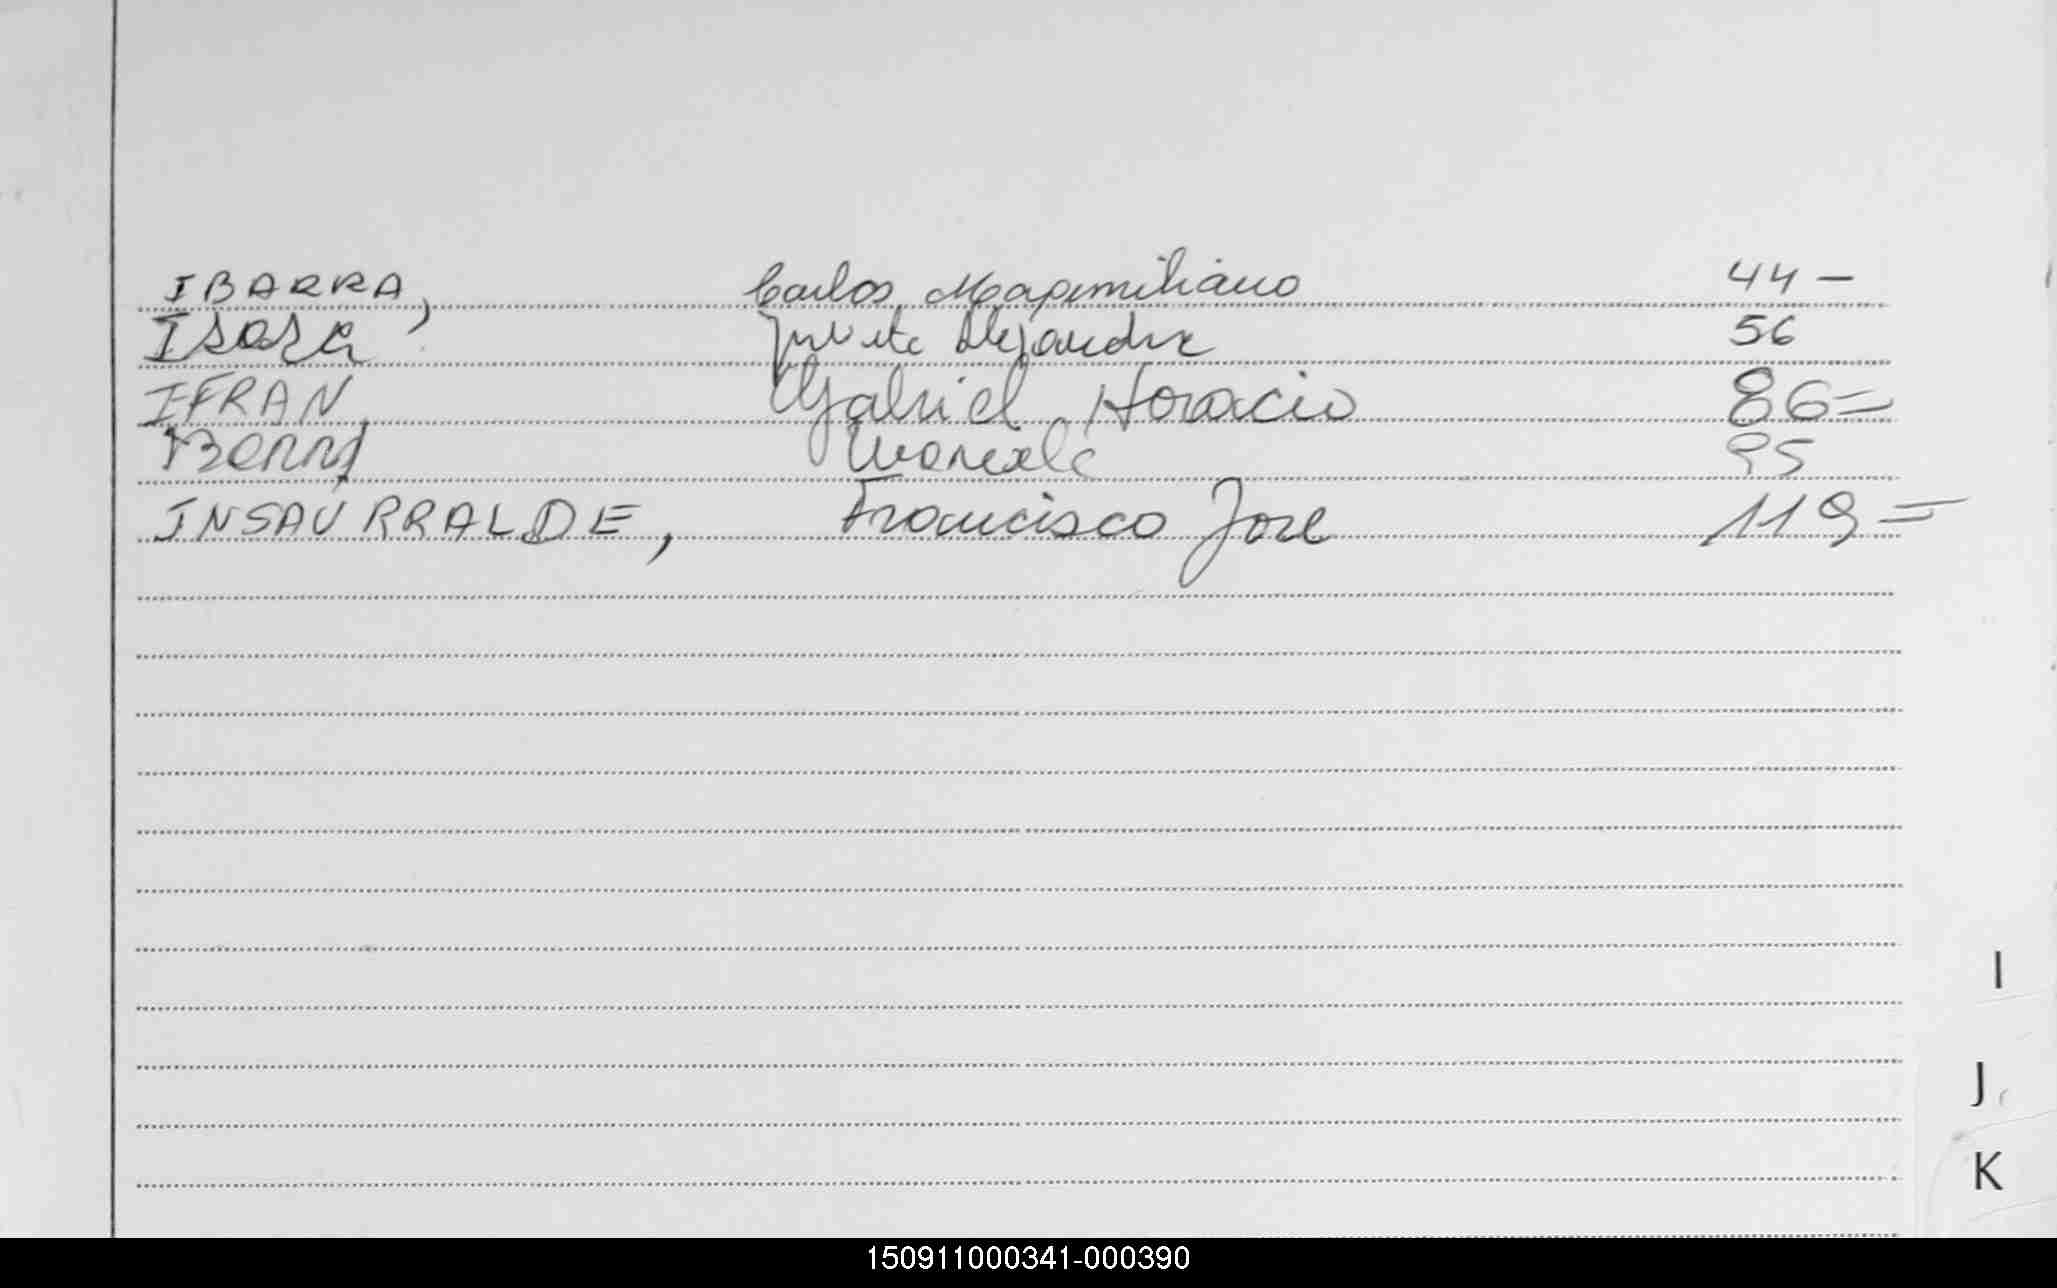 IBARRA, Carlos Maximiliano 44 -
Isasa Alejandra 56
IFRAN Gabriel Horacio 86 =
95
INSAURRALDE, Francisco Jose 119 =
I
J
K
150911000341-000390